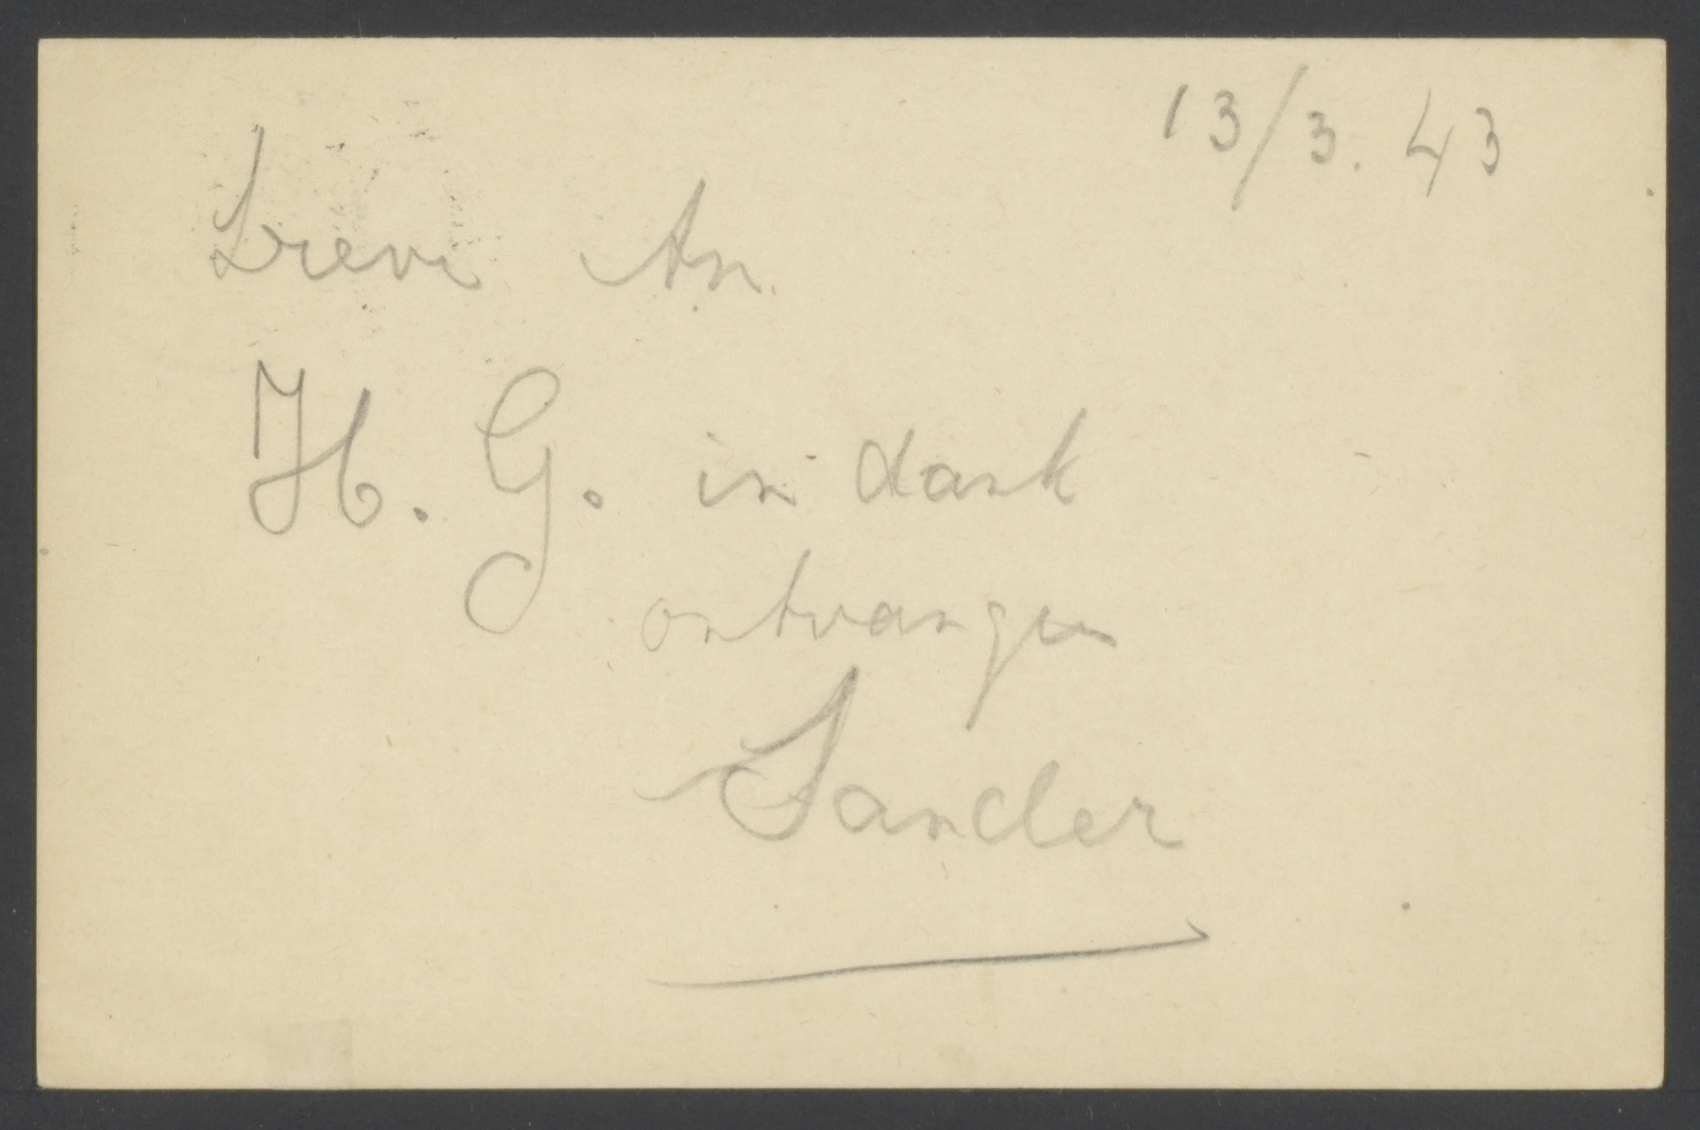 13/3. 43
Lieve An
H. G. in dank
ontvangen
Sander